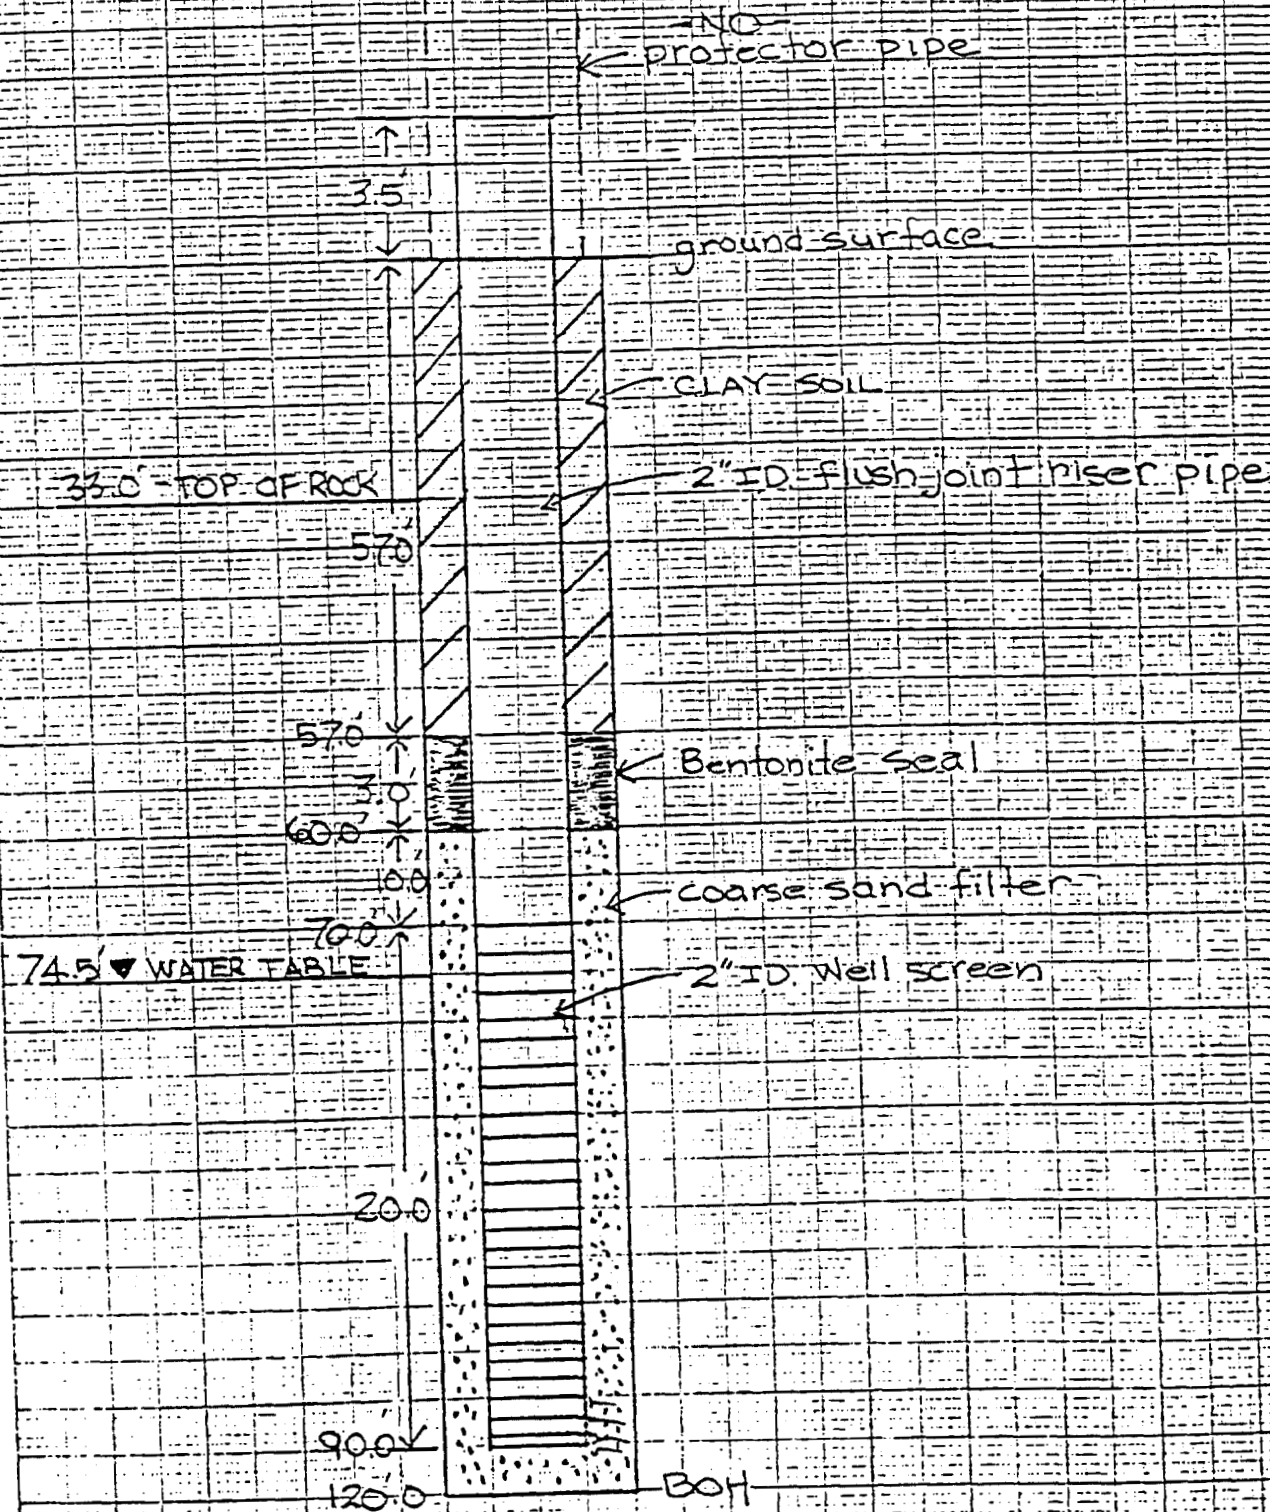 NO
protector pipe
3.5'
ground surface
CLAY SOIL
2" ID. flush joint riser pipe
33.0' - TOP OF ROCK
57.0'
57.0'
Bentonite Seal
3.0'
60.0'
10.0'
coarse sand filter
70.0'
74.5' ▼ WATER TABLE
2" ID. Well screen
20.0'
90.0'
120.0'
BOH